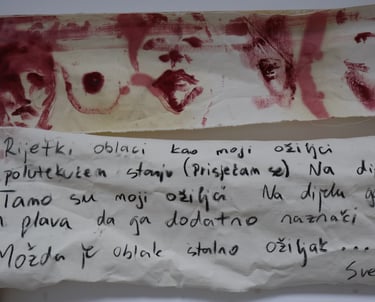 Rijetki oblaci kao moji ožiljci
polutekućem stanju (Prisjećam se) Na di
Tamo su moji ožiljci Na dijelu g
plava da ga dodatno naznači
Možda je oblak stalno ožiljak ...
Sve